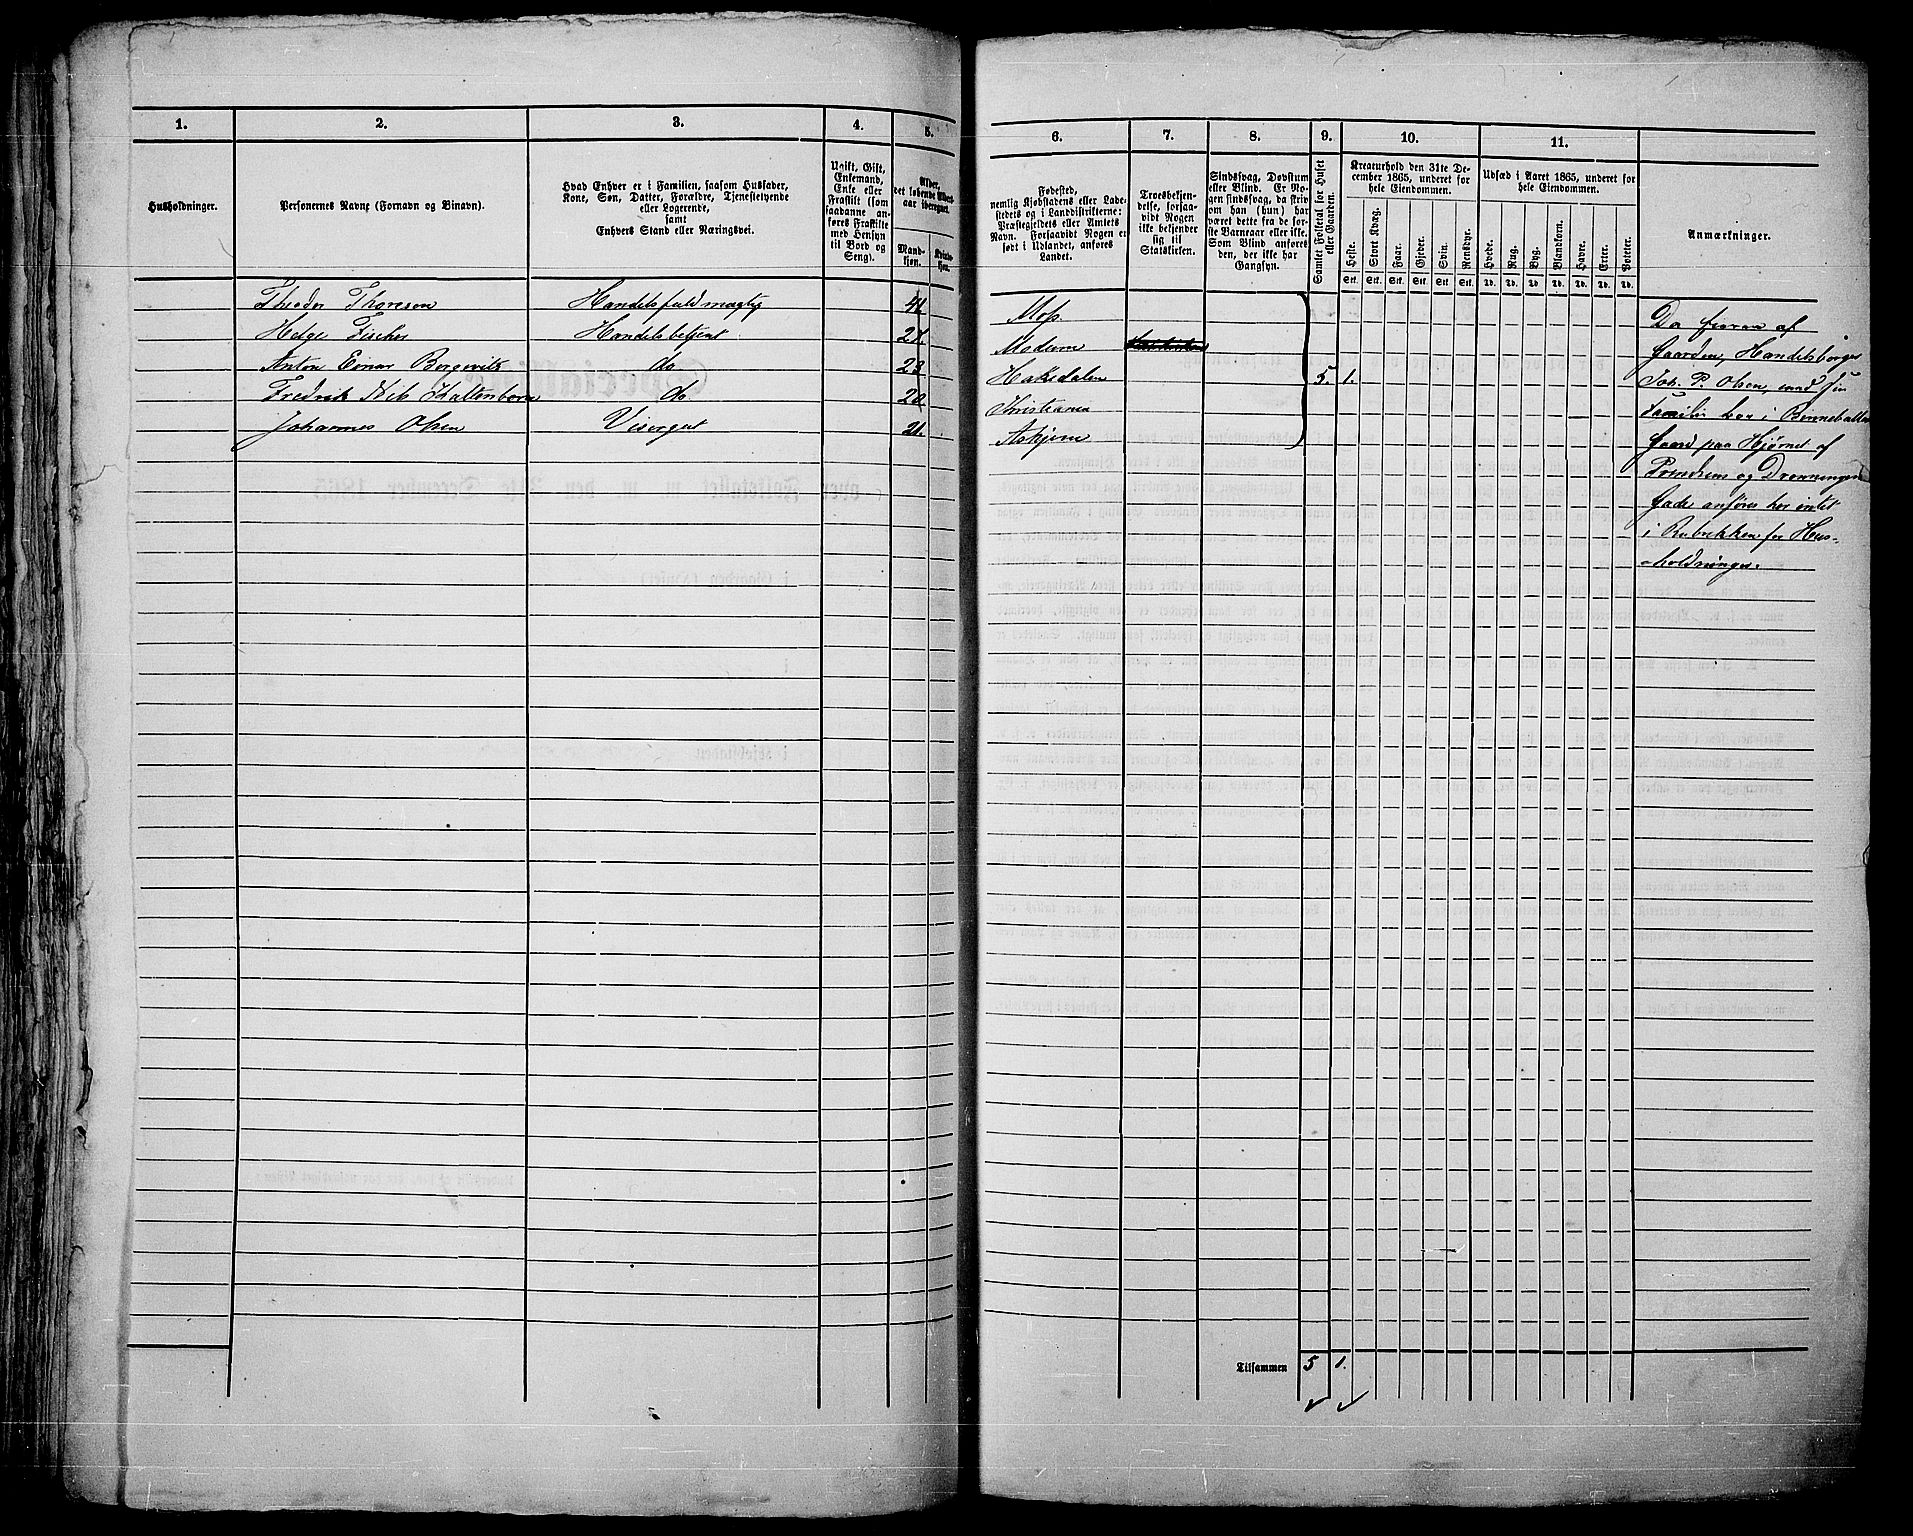 1.
2.
3.
4.
5.
Husholdninger.
Personernes Navne (Fornavn og Binavn).
Hvad Enhver er i Familien, saasom Husfader,
Kone, Søn, Datter, Forældre, Tjenestetyende
eller Logerende,
samt
Enhvers Stand eller Næringsvei.
Ugift, Gift,
Enkemand,
Enke eller
Fraskilt (som
saadanne an-
føres Fraskilte
med Hensyn
til Bord og
Seng).
Alder,
det løbende Alders-
aar iberegnet.
Mand-
kjøn.
Kvinde-
kjøn.
Theodor Thoresen Handelsfuldmægtig 41
Helge Fischer Handelsbetjent 27.
Anton Einar Bergwitz do 23
Fredrik Kaltenborn do 20
Johannes Olsen Visergut 21.
6.
7.
8.
9.
10.
11.
Fødested,
nemlig Kjøbstadens eller Lade-
stedets og i Landdistrikterne:
Præstegjeldets eller Amtets
Navn. Forsaavidt Nogen er
født i Udlandet, anføres
Landet.
Troesbekjen-
delse, forsaa-
vidt Nogen
ikke bekjender
sig til
Statskirken.
Sindssvag, Døvstum
eller Blind. Er No-
gen sindssvag, da skriv
om han (hun) har
været dette fra de før-
ste Barneaar eller ikke.
Som Blind anføres
den, der ikke har
Gangsyn.
Samlet Folketal for Huset
eller Gaarden.
Kreaturhold den 31te De-
cember 1865, underet for
hele Eiendommen.
Heste. Stort Kvæg. Faar. Gjeder. Svin. Rensdyr.
Stk. Stk. Stk. Stk. Stk. Stk.
Udsæd i Aaret 1865, underet for
hele Eiendommen.
Hvede. Rug. Byg. Blandkorn. Havre. Erter. Poteter.
Td. Td. Td. Td. Td. Td. Td.
Anmærkninger.
Moss.
Modum
Hakedalen 5. 1.
Christiania
Askjem
Da Eieren af
Gaarden, Handelsborger
Joh. P. Olsen, med sin
Familie bor i
Gaard paa Hjørnet af
Prindsens og Dronningens
Gade anføres her intet
i Rubrikken for Hus-
holdninger.
Tilsammen 5 1.